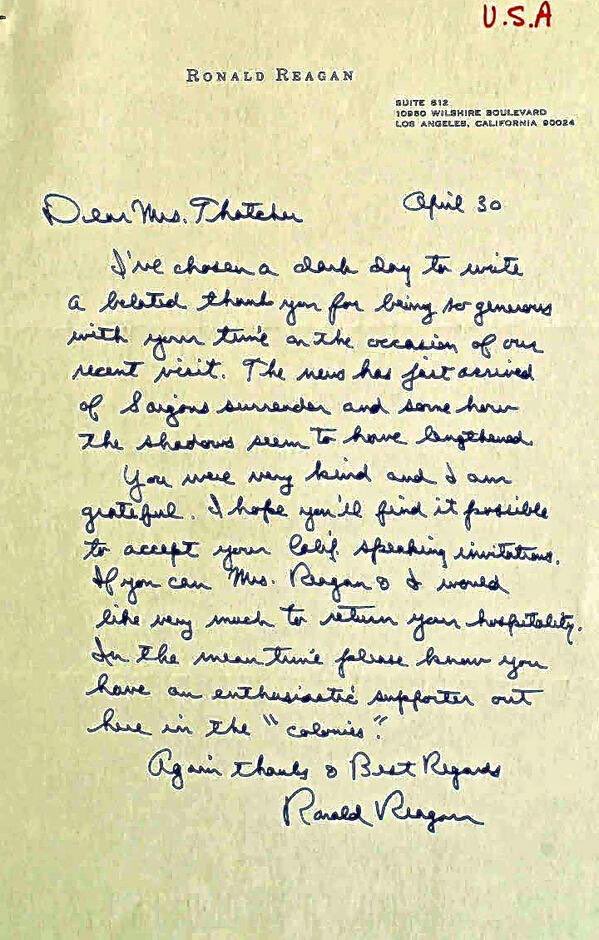 U.S.A
RONALD REAGAN
SUITE 812
10960 WILSHIRE BOULEVARD
LOS ANGELES, CALIFORNIA 90024
Dear Mrs. Thatcher April 30
I've chosen a dark day to write
a belated thank you for being so generous
with your time on the occasion of our
recent visit. The news has just arrived
of Saigons surrender and some how
the shadows seem to have lengthened.
You were very kind and I am
grateful. I hope you'll find it possible
to accept your Calif. speaking invitations.
If you can Mrs. Reagan & I would
like very much to return your hospitality.
In the mean time please know you
have an enthusiastic supporter out
here in the "colonies".
Again thanks & Best Regards
Ronald Reagan